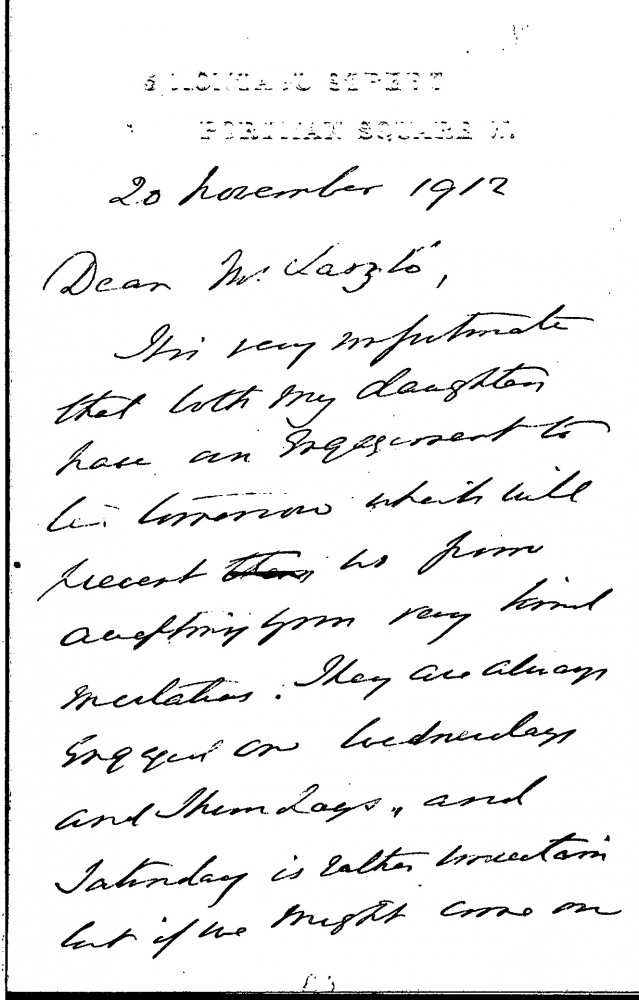 MONTAGU STREET
PORTMAN SQUARE W.
20 November 1912
Dear Mr. László,
It is very unfortunate
that both my daughters
have an Engagement to
tomorrow which will
prevent them us from
accepting your very kind
invitation. They are always
Engaged on Wednesdays
and Thursdays, and
Saturday is rather uncertain
but if we might come on